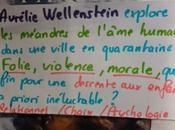 Aurélie Wellenstein explore
les méandres de l'âme humaine
dans une ville en quarantaine
Folie, violence, morale, qu
fin pour une descente aux enfers
a priori inéluctable ?
Relationnel / Choix / Psychologie